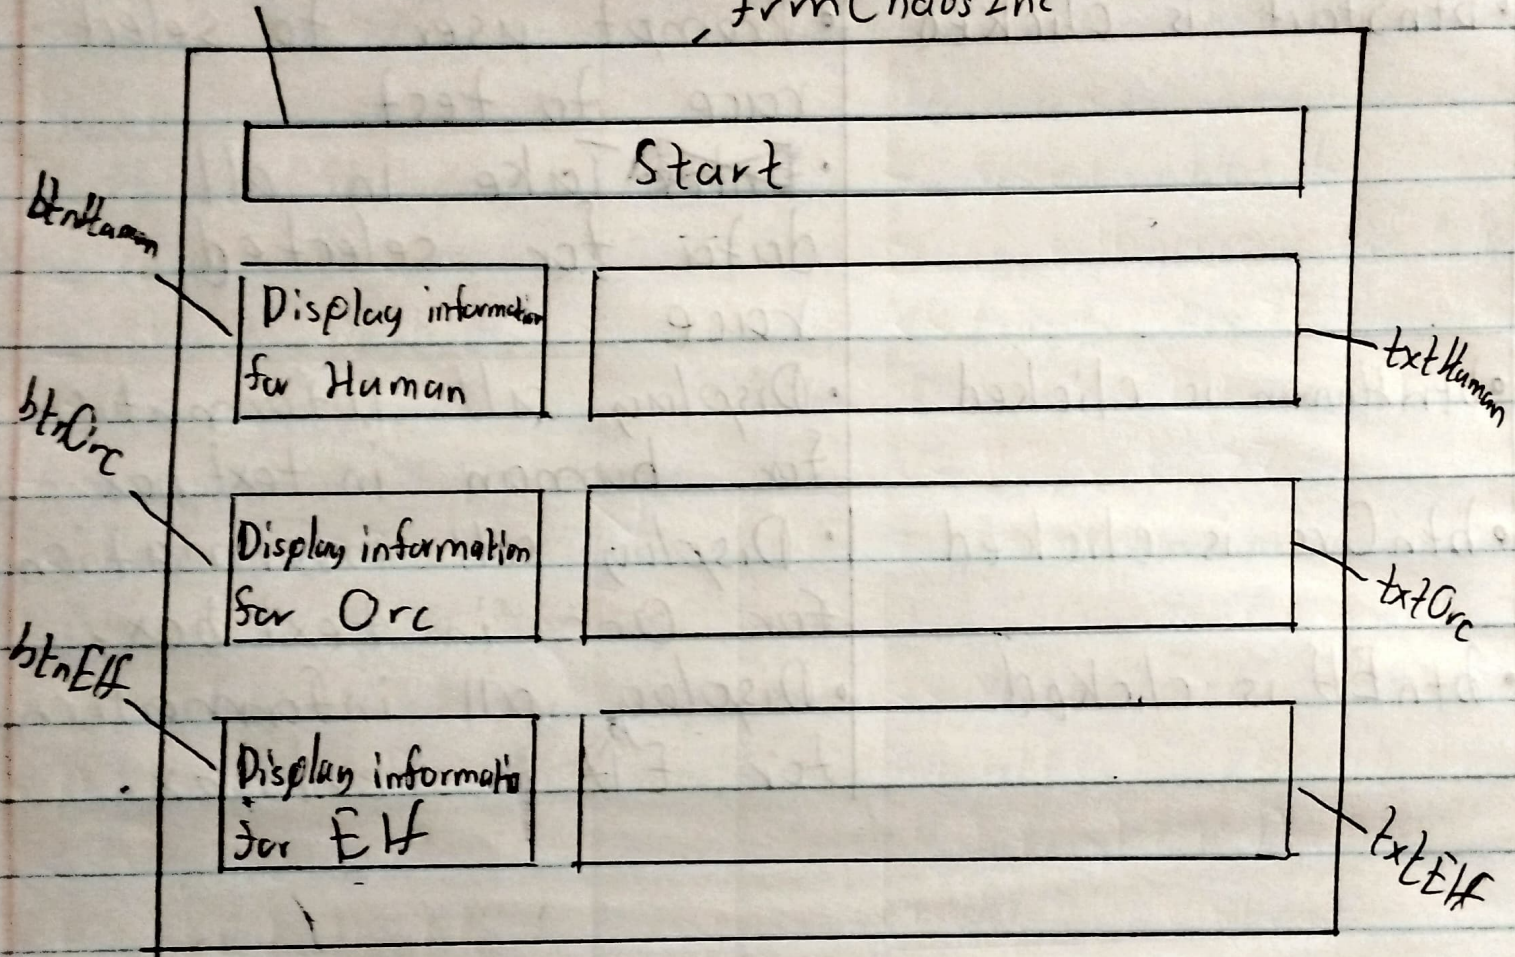 frmChaosInc
Start
btnHuman
Display information
for Human
txtHuman
btnOrc
Display information
for Orc
txtOrc
btnElf
Display informatio
for Elf
txtElf